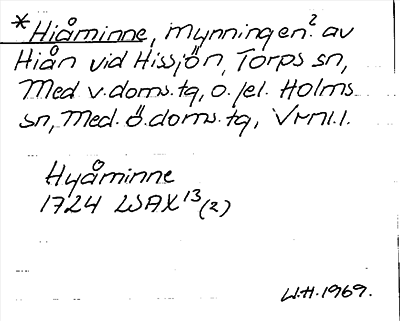 *Hiåminne, mynningen? av
Hiån vid Hissjön, Torps sn,
Med. v. doms. tg, o./el. Holms
sn, Med. ö. doms. tg, Vrml.l.
Hyåminne
1724 LSAX13(2)
W.H. 1969.